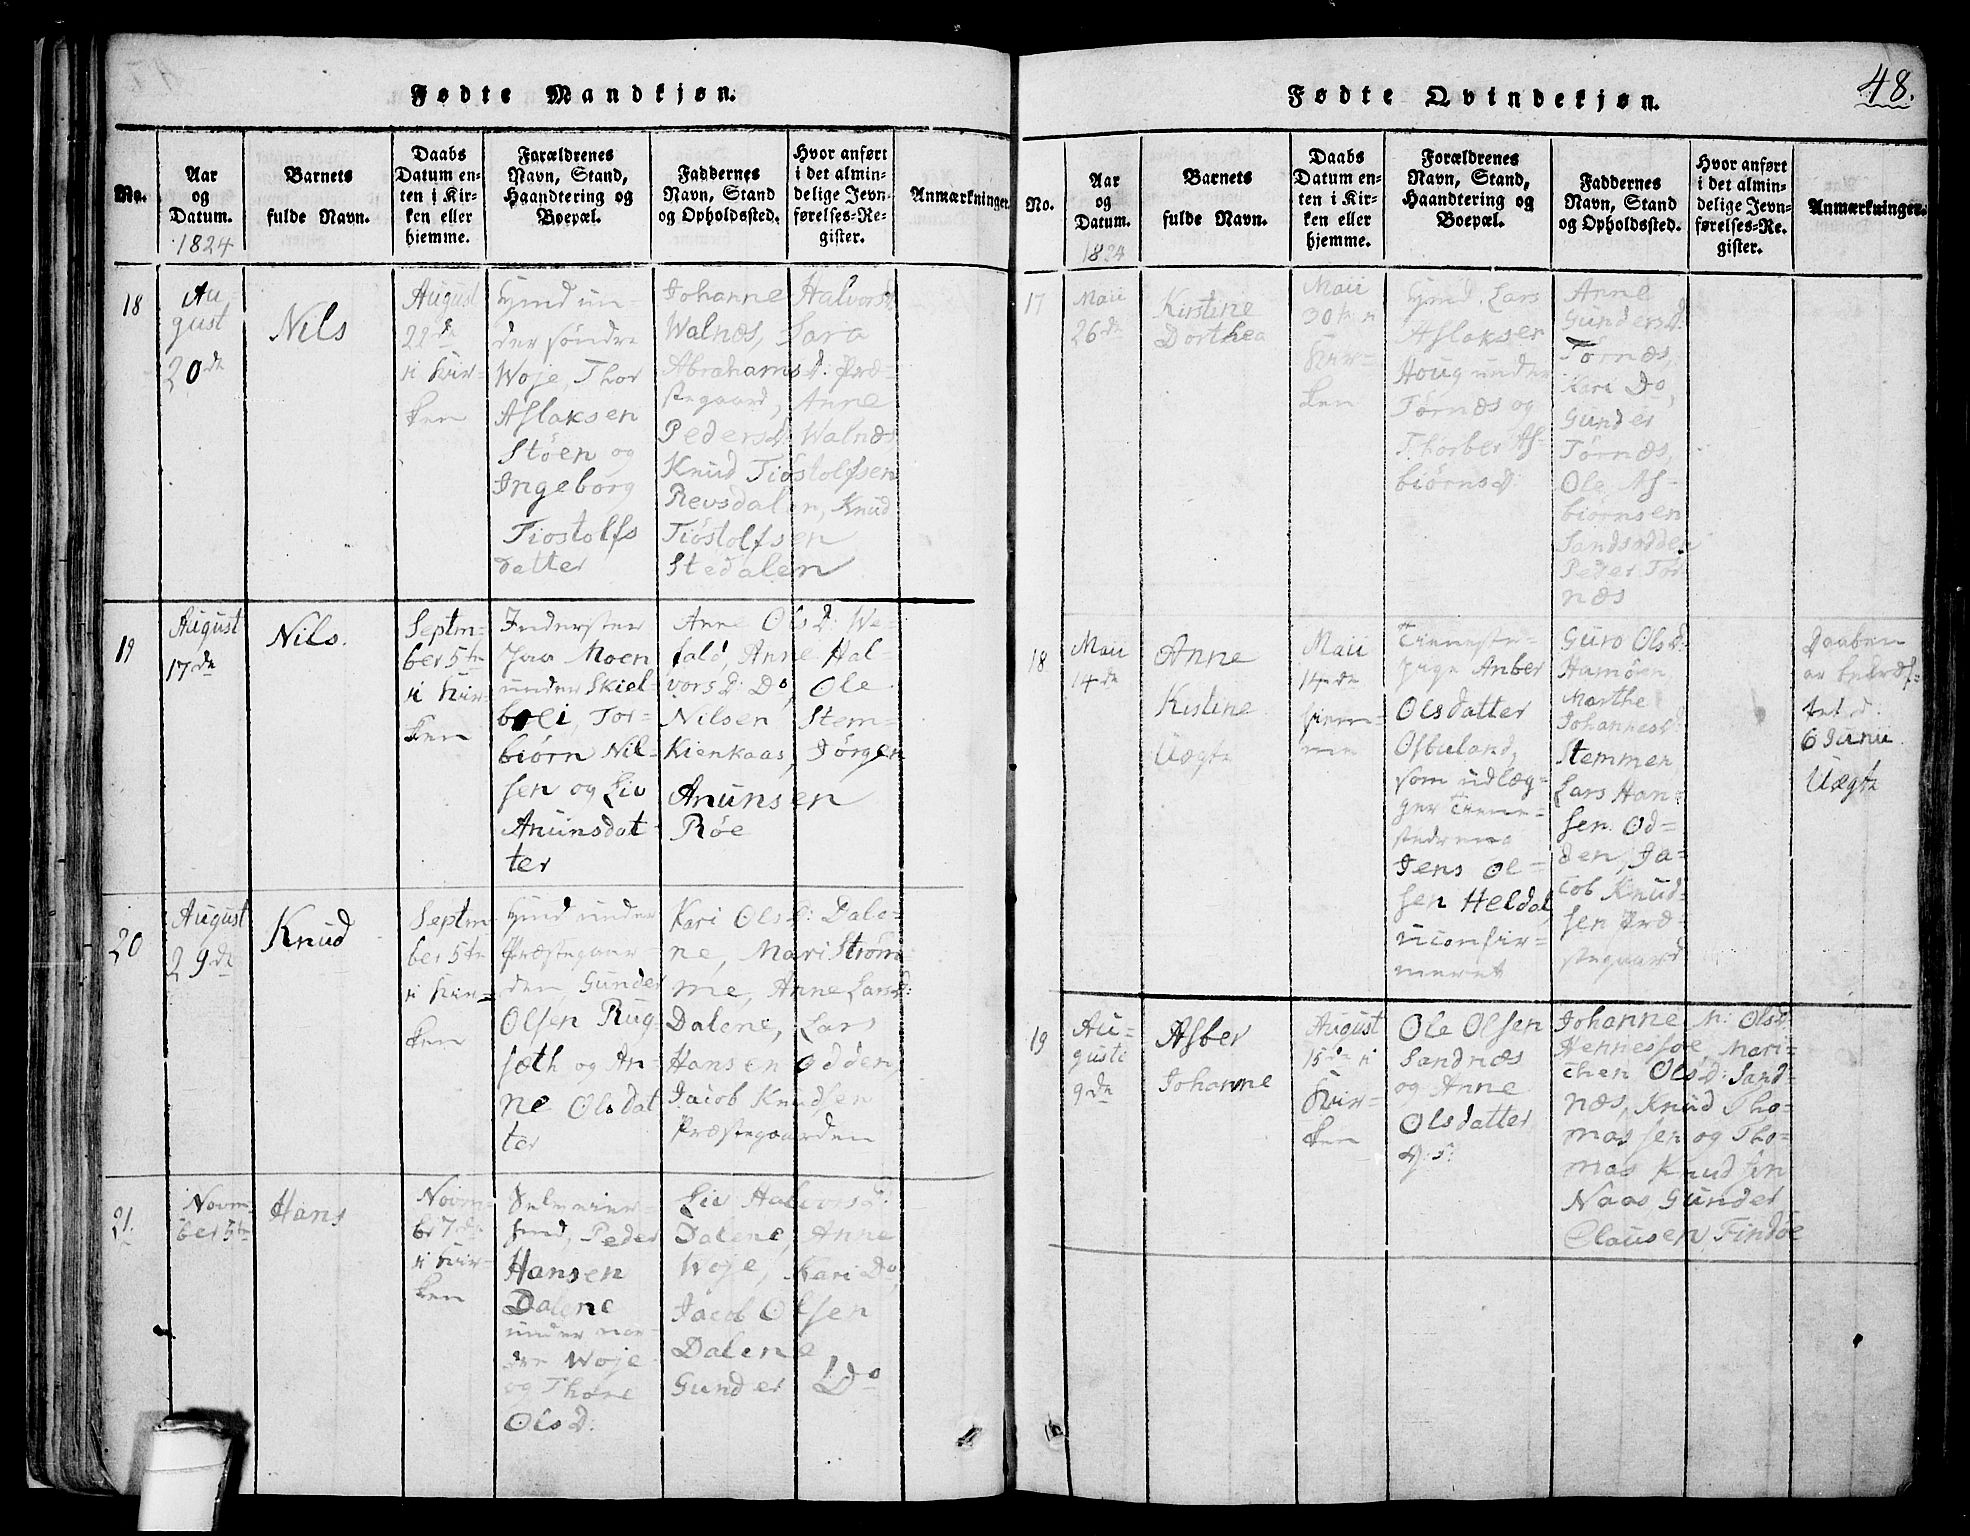 Fødte Mandkjøn.
No.
Aar
og
Datum.
1824
Barnets
fulde Navn.
Daabs
Datum en-
ten i Kir-
ken eller
hjemme.
Forældrenes
Navn, Stand,
Haandtering og
Boepæl.
Faddernes
Navn, Stand
og Opholdssted.
Hvor anført
i det almin-
delige Jevn-
førelses-Re-
gister.
Anmærkninger.
18
Au
gust
20de
Nils
August
22de
i Kir-
ken
Hmd un-
der søndre
Woje, Thor
Aslaksen
Støen og
Ingeborg
Tiostolfs
datter
Johanne Halvorsd:
Walnæs, Sara
Abrahamsd: Præ-
stegaard, Anne
Pedersd: Walnæs,
Knud Tiöstolfsen
Revsdalen, Knud
Tiöstolfsen
Stedalen
19
August
17de
Nils.
Septm-
ber 5te
i Kir-
ken
Inderster
paa Moen
under Skiel-
boli, Tor-
biørn Nil-
sen og Liv
Anunsdat-
ter
Anne Olsd: We-
fald, Anne Hal-
vorsd: Do, Ole
Nilsen Stem-
Kienkaas, Jørgen
Anunsen
Røe
20
August
29de
Knud
Septm
ber 5te
i Kir-
ken
Hmd under
Præstegaar-
den, Gunder
Olsen Rug-
sæth og An-
ne Olsdat
ter
Kari Olsd: Dale-
ne, Mari Strøm
me, Anne Larsd:
Dalene, Lars
Hansen Odden,
Jacob Knudsen
Præstegaarden
21.
Novm-
ber 5te
Hans
Novm-
br 7de
i Kir-
ken
Selveier-
Peder
Hansen
Dalene
under nor-
dre Woje
og Thore
Olsd:
Liv Halvorsd:
Dalene, Anne
Woje, Kari Do,
Jacob Olsen
Dalene
Gunder Do
48.
Fødte Qvindekjøn.
No.
Aar
og
Datum.
1824
Barnets
fulde Navn.
Daabs
Datum en-
ten i Kir-
ken eller
hjemme.
Forældrenes
Navn, Stand,
Haandtering og
Boepæl.
Faddernes
Navn, Stand
og Opholdssted.
Hvor anført
i det almin-
delige Jevn-
førelses-Re-
gister.
Anmærkninger.
17
Maii
26de
Kirstine
Dorthea
Maii
30te i
Kir-
ken
Hmd. Lars
Aslaksen
Houg under
Tørnæs og
Thorber As-
biørnsd:
Anne
Gundersd:
Tørnæs,
Kari Do,
Gunder
Tørnæs,
Ole As-
biørnsen
Sandsodden
Peder Tør
næs
18
Maii
14de
Anne
Kistine
Uægte
Maii
14de
hiem-
me
Tieneste-
pige Anber
Olsdatter
Osbuland,
som udlæg-
ger Tiene-
stedreng
Jens Ol-
sen Heldal
uconfir-
meret
Guro Olsd:
Hamøen,
Marthe
Johannesd:
Stemmen
Lars Han-
sen Od-
den, Ja-
cob Knud-
sen Præ-
stegaard
Daaben
er bekræf-
tet d.
6 Junii.
Uægte
19
Au-
gusti
9de
Asber
Johanne
August
15de i
Kir-
ken
Ole Olsen
Sandnæs
og Anne
Olsdatter
Johanne M: Olsd:
Hennesøe, Mari-
chen Olsd: Sand-
næs, Knud Tho-
massen og Tho-
mas Knudsen
Naas Gunder
Clausen Findøe